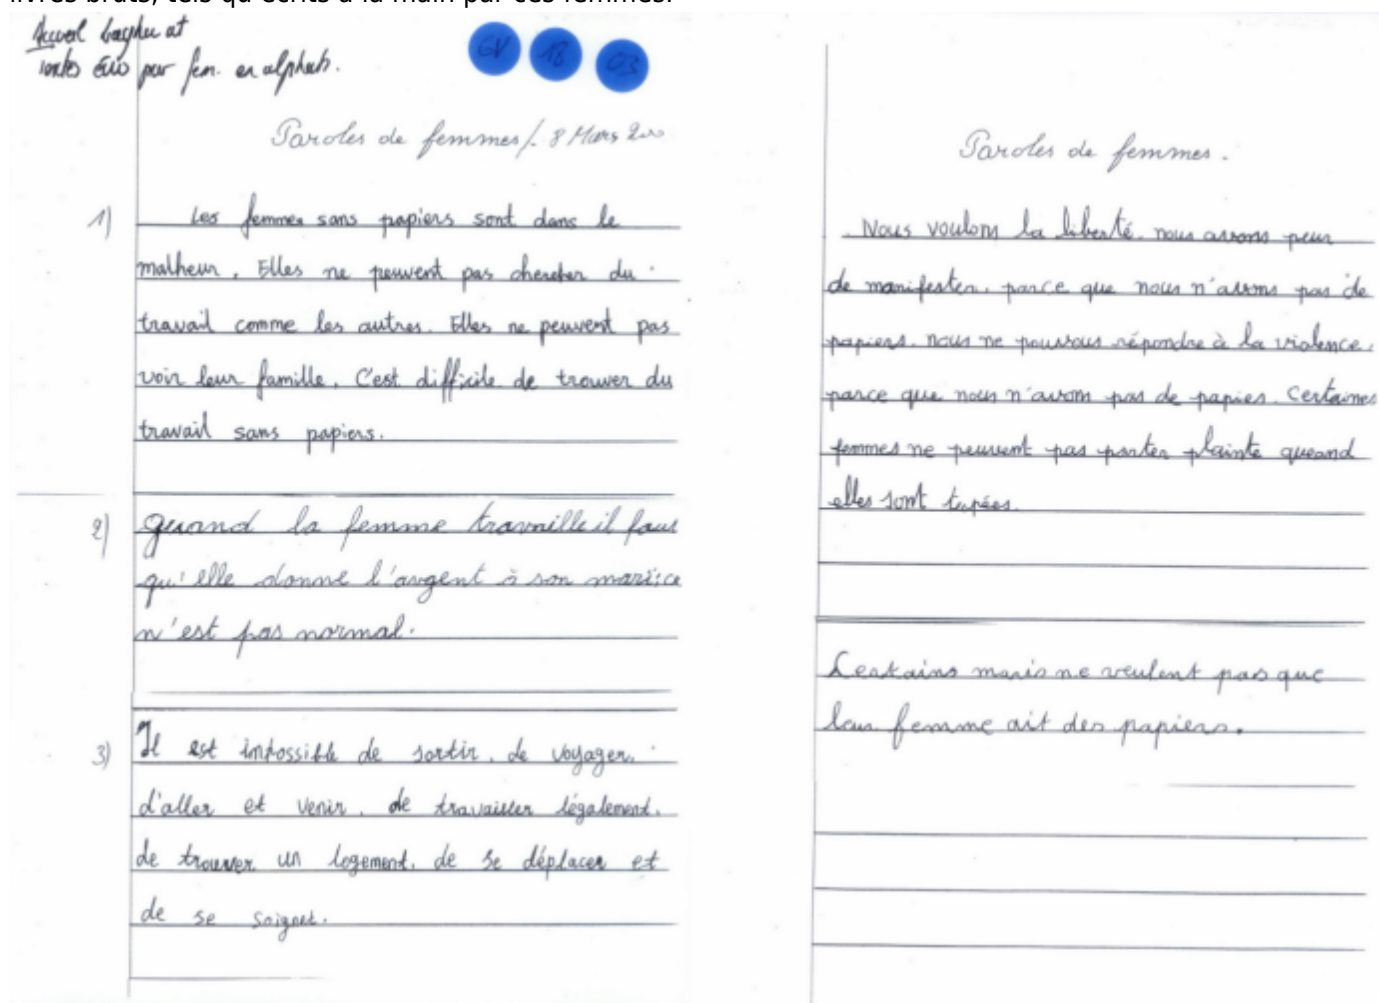 livrés bruts, tels qu'écrits à la main par ces femmes.
par fem. en alphab.
GV 18 03
Paroles de femmes /. 8 Mars
1) Les femmes sans papiers sont dans le
malheur. Elles ne peuvent pas chercher du
travail comme les autres. Elles ne peuvent pas
voir leur famille. C'est difficile de trouver du
travail sans papiers.
2) quand la femme travaille il faut
qu'elle donne l'argent à son mari: ce
n'est pas normal.
3) Il est impossible de sortir, de voyager,
d'aller et venir, de travailler légalement,
de trouver un logement, de se déplacer et
de se soigner.
Paroles de femmes.
Nous voulons la liberté. nous avons peur
de manifester, parce que nous n'avons pas de
papiers. nous ne pouvous répondre à la violence,
parce que nous n'avons pas de papies. Certaines
femmes ne peuvent pas porter plainte queand
elles sont tapées.
Certains maris ne veulent pas que
leur femme ait des papiers.